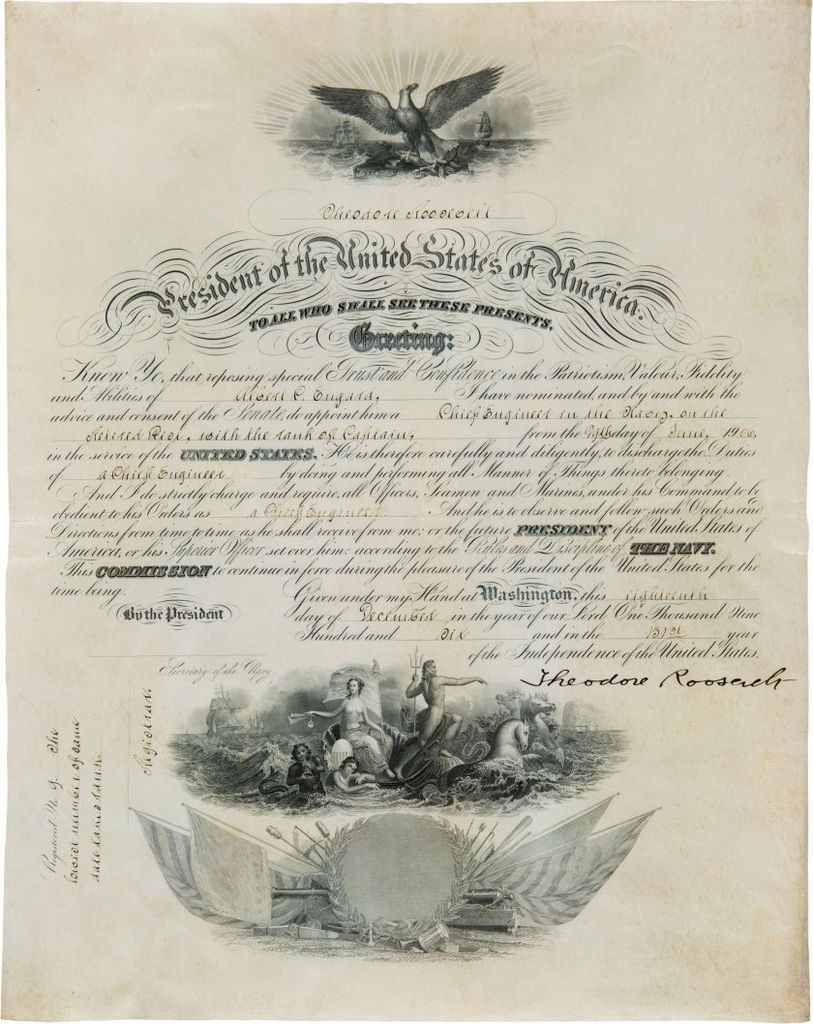 Theodore Roosevelt
President of the United States of America.
TO ALL WHO SHALL SEE THESE PRESENTS,
Greeting:
Know Ye, that reposing special Trust and Confidence in the Patriotism, Valour, Fidelity
and Abilities of Albert C. Engard, I have nominated, and by and with the
advice and consent of the Senate, do appoint him a Chief Engineer in the Navy, on the
Retired List, with the rank of Captain, from the day of June, 1906,
in the service of the UNITED STATES. He is therefore carefully and diligently, to discharge the Duties
of a Chief Engineer by doing and performing all Manner of Things thereto belonging.
And I do strictly charge and require all Officers, Seamen and Marines, under his Command to be
obedient to his Orders as a Chief Engineer And he is to observe and follow such Orders and
Directions from time to time as he shall receive from me, or the future PRESIDENT of the United States of
America, or his Superior Officer set over him, according to the Rules and Discipline of THE NAVY.
This COMMISSION to continue in force during the pleasure of the President of the United States for the
time being. Given under my Hand at Washington, this eighteenth
By the President
day of December in the year of our Lord One Thousand Nine
Hundred and Six and in the 131st year
of the Independence of the United States.
Secretary of the Navy
Theodore Roosevelt
Registered No. The
lowest number of same
date and rank